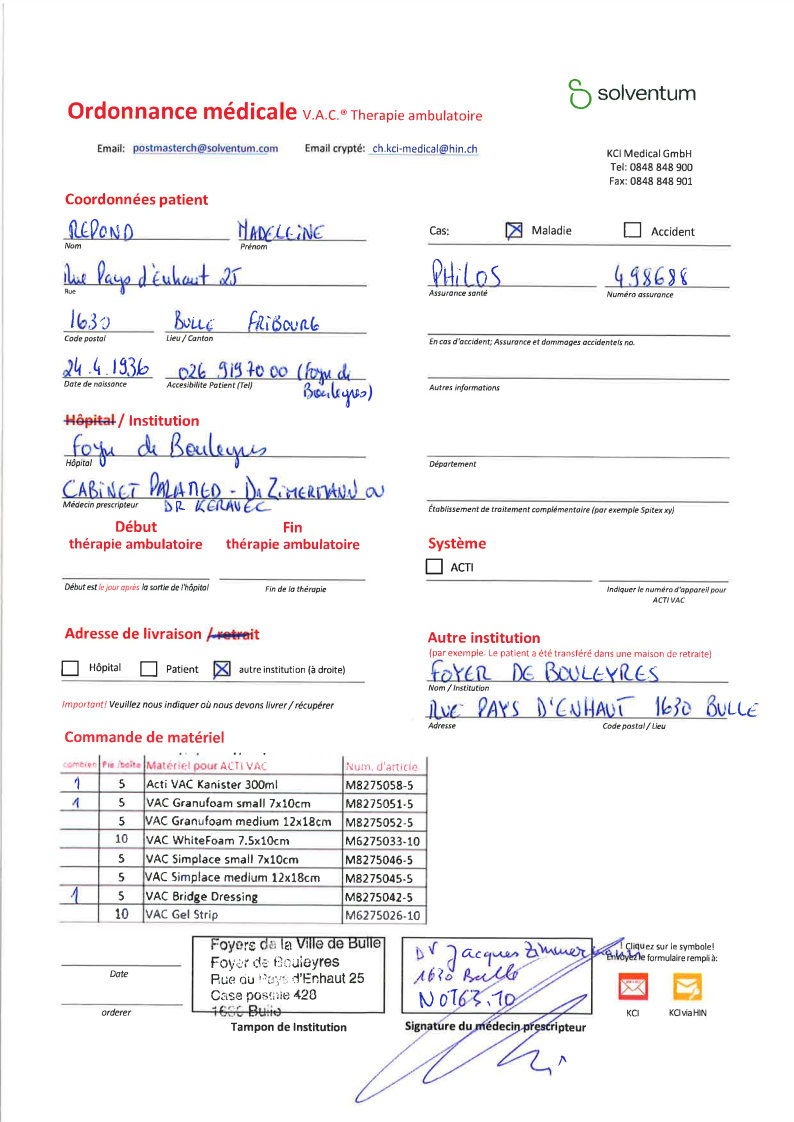 solventum
Ordonnance médicale V.A.C.® Therapie ambulatoire
Email: postmasterch@solventum.com Email crypté: ch.kci-medical@hin.ch
KCI Medical GmbH
Tel: 0848 848 900
Fax: 0848 848 901
Coordonnées patient
REPOND MADELEINE
Nom Prénom
Rue Pays d'Enhaut 25
Rue
1630 BULLE FRIBOURG
Code postal Lieu / Canton
24.4.1936 026 919 70 00 (Foyer de
Bouleyres)
Date de naissance Accesibilite Patient (Tel)
Cas: Maladie Accident
PHILOS 498688
Assurance santé Numéro assurance
En cas d'accident; Assurance et dommages accidentels no.
Autres informations
Hôpital / Institution
Foyer de Bouleyres
Hôpital
CABINET PALAMED - Dr ZIMERMANN OU
Médecin prescripteur DR KERAVEC
Département
Établissement de traitement complémentaire (par exemple Spitex xy)
Début Fin
thérapie ambulatoire thérapie ambulatoire
Début est le jour après la sortie de l'hôpital Fin de la thérapie
Système
ACTI
Indiquer le numéro d'appareil pour
ACTI VAC
Adresse de livraison / retrait
Hôpital Patient autre institution (à droite)
Important! Veuillez nous indiquer où nous devons livrer / récupérer
Autre institution
(par exemple: Le patient a été transféré dans une maison de retraite)
FOYER DE BOULEYRES
Nom / Institution
RUE PAYS D'ENHAUT 1630 BULLE
Adresse Code postal / Lieu
Commande de matériel
combien Pie /boîte Matériel pour ACTI VAC Num. d'article
1 5 Acti VAC Kanister 300ml M8275058-5
1 5 VAC Granufoam small 7x10cm M8275051-5
5 VAC Granufoam medium 12x18cm M8275052-5
10 VAC WhiteFoam 7.5x10cm M6275033-10
5 VAC Simplace small 7x10cm M8275046-5
5 VAC Simplace medium 12x18cm M8275045-5
1 5 VAC Bridge Dressing M8275042-5
10 VAC Gel Strip M6275026-10
Date
orderer
Foyers de la Ville de Bulle
Foyer de Bouleyres
Rue du Pays d'Enhaut 25
Case postale 428
Bulle
Tampon de Institution
Dr Jacques Zimmermann
1630 Bulle
N0763.10
Signature du médecin prescripteur
! Cliquez sur le symbole!
Envoyez le formulaire rempli à:
KCI KCI via HIN